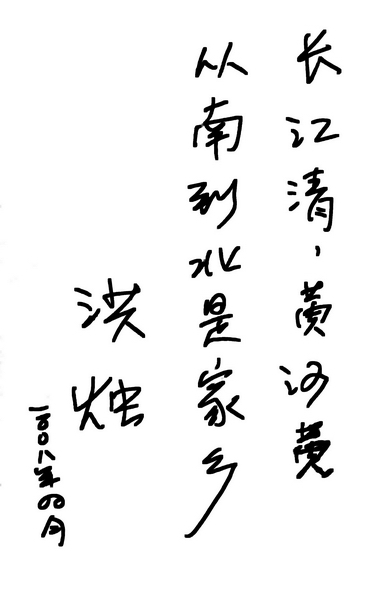 长江清，黄河黄
从南到北是家乡
洪烛
二〇〇八年四月